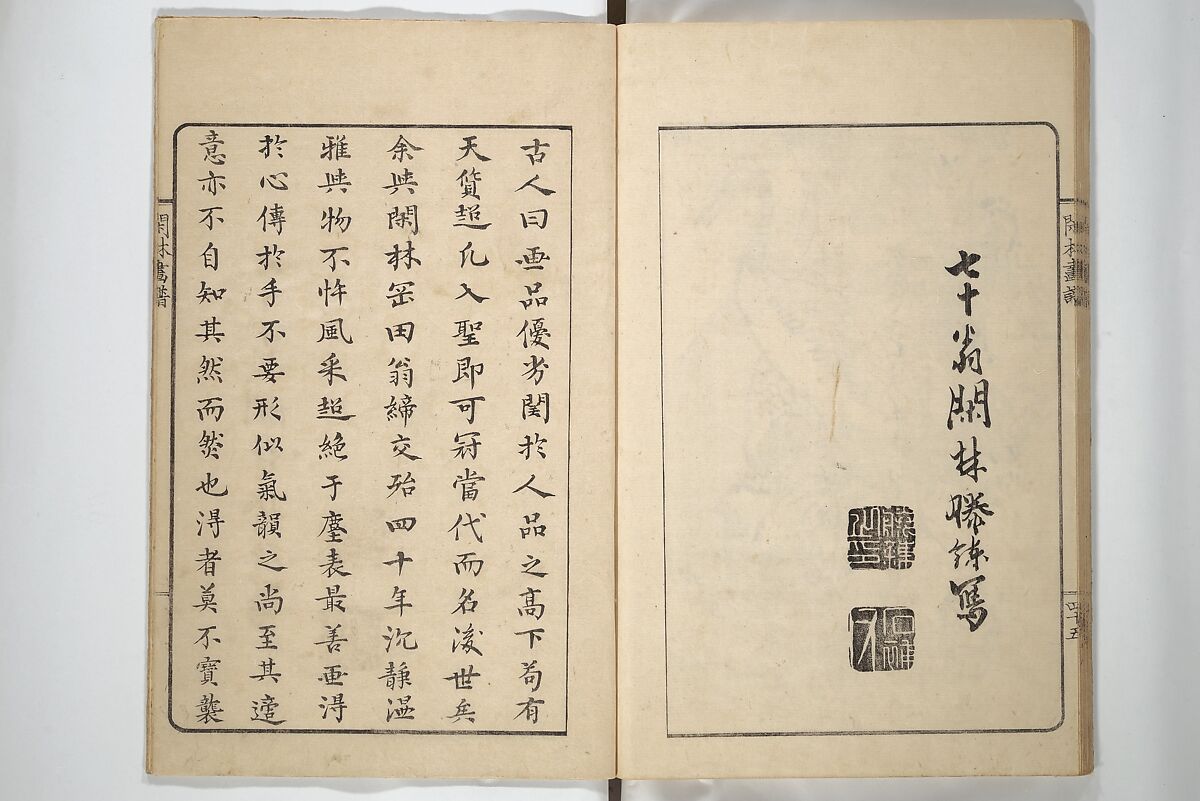 七十翁閑林勝鎌寫
四十五
古人曰画品優劣関於人品之髙下苟有
天質超凡入聖即可冠當代而名後世矣
余與閑林岡田翁締交殆四十年沉静温
雅與物不忤風采超絶于塵表最善画得
於心傳於手不要形似氣韻之尚至其適
意亦不自知其然而然也得者莫不寳襲
閑林畫譜